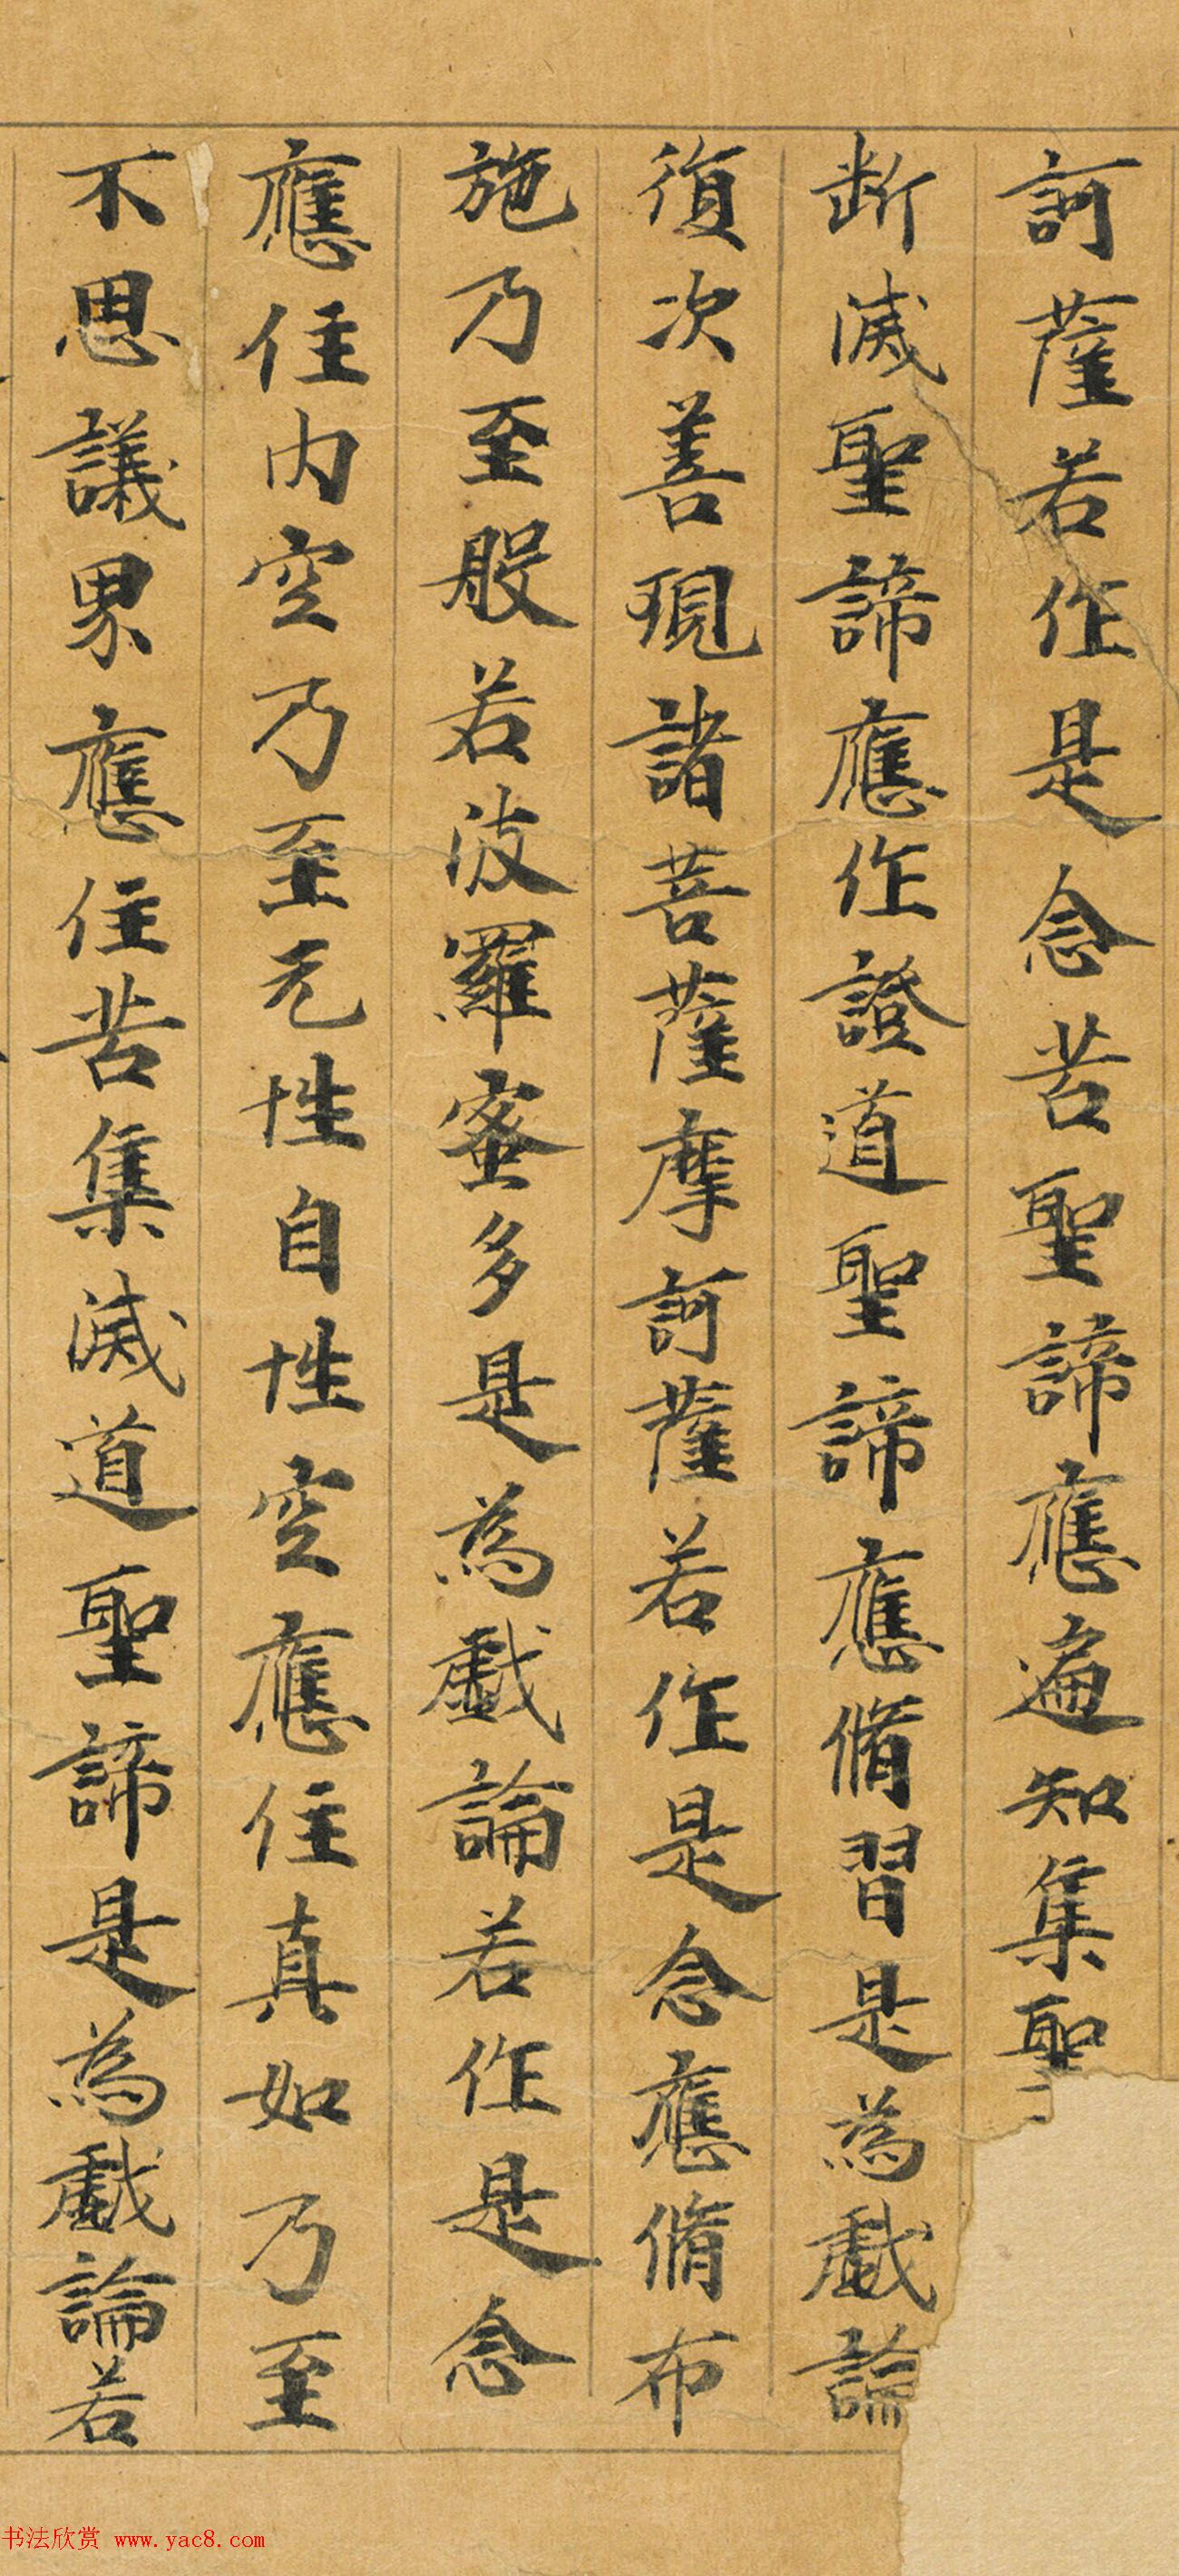 訶薩若作是念苦聖諦應遍知集聖
断滅聖諦應作證道聖諦應脩習是為戯論
復次善現諸菩薩摩訶薩若作是念應脩布
施乃至般若波羅蜜多是為戯論若作是念
應住內空乃至无性自性空應住真如乃至
不思議界應住苦集滅道聖諦是為戯論若
书法欣赏 www.yac8.com